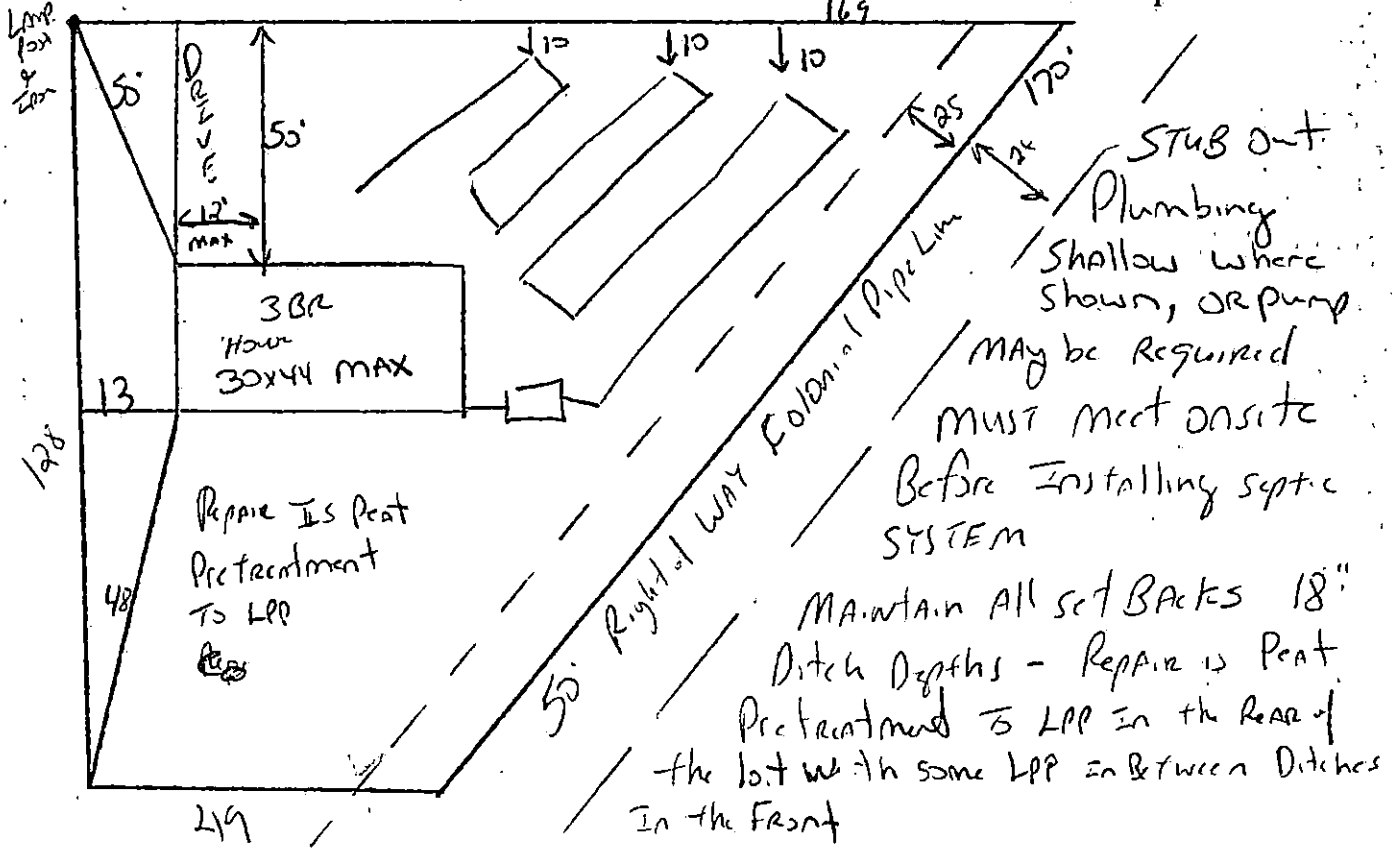 169
LAMP
Post
50'
DRIVE
50'
12'
MAX
10
10
10
25
170'
3BR
30x44 MAX
13
128
48
Repair Is Peat
Pretreatment
To LPP
50' Right of WAY Colonial Pipe Line
STUB Out
Plumbing
Shallow where
Shown, OR pump
MAY be Required
MUST meet onsite
Before Installing septic
SYSTEM
MAintAin All set BAcks 18"
Ditch Depths - RepAir is Peat
Pretreatment To LPP In the ReAR of
the lot with some LPP In Between Ditches
In the Front